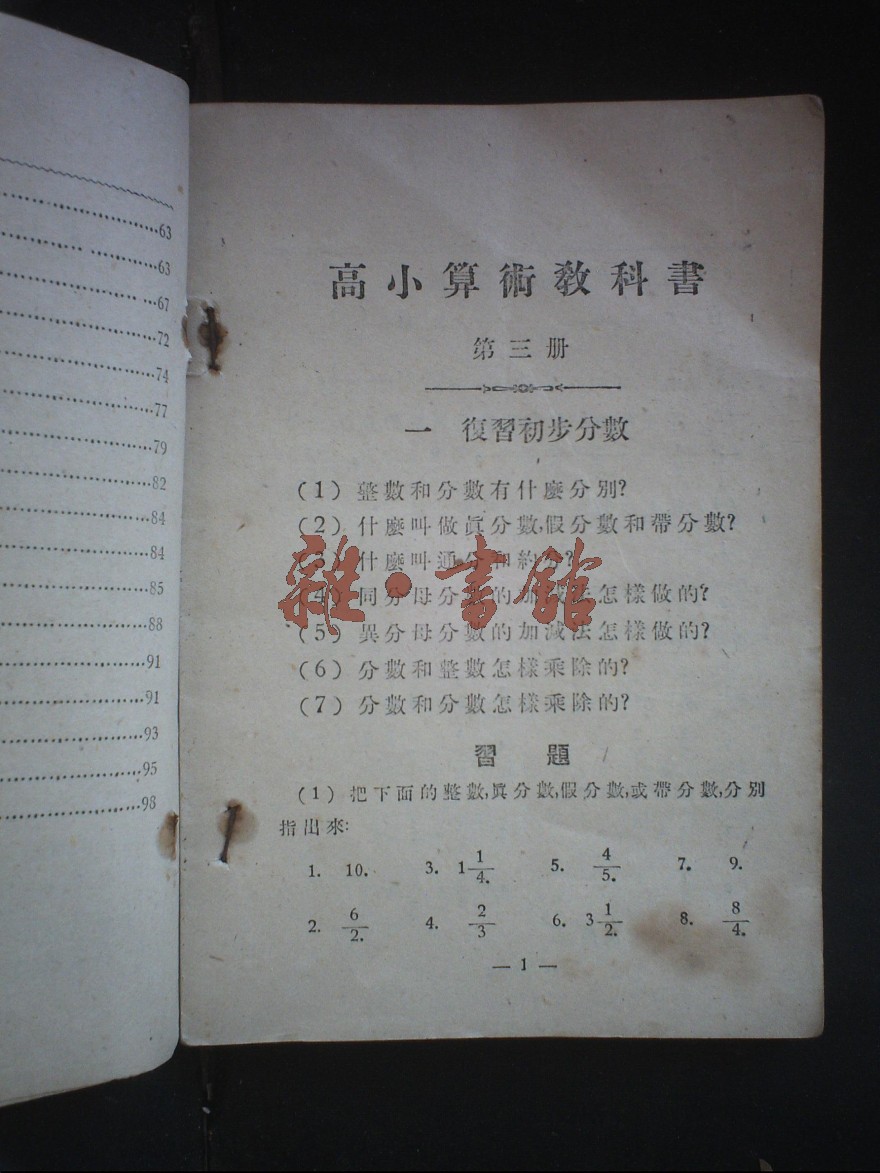 63
63
67
72
74
77
79
82
84
84
85
88
91
91
93
95
98
高小算術敎科書
第三册
一 復習初步分數
(1) 整數和分數有什麼分別?
(2) 什麼叫做眞分數,假分數和帶分數?
(3) 什麼叫通分和約分?
(4) 同分母分數的加減法怎樣做的?
(5) 異分母分數的加減法怎樣做的?
(6) 分數和整數怎樣乘除的?
(7) 分數和分數怎樣乘除的?
雜·書館
習題
(1) 把下面的整數,眞分數,假分數,或帶分數,分別
指出來:
1. 10. 3. 1 1/4. 5. 4/5. 7. 9.
2. 6/2. 4. 2/3 6. 3 1/2. 8. 8/4.
— 1 —